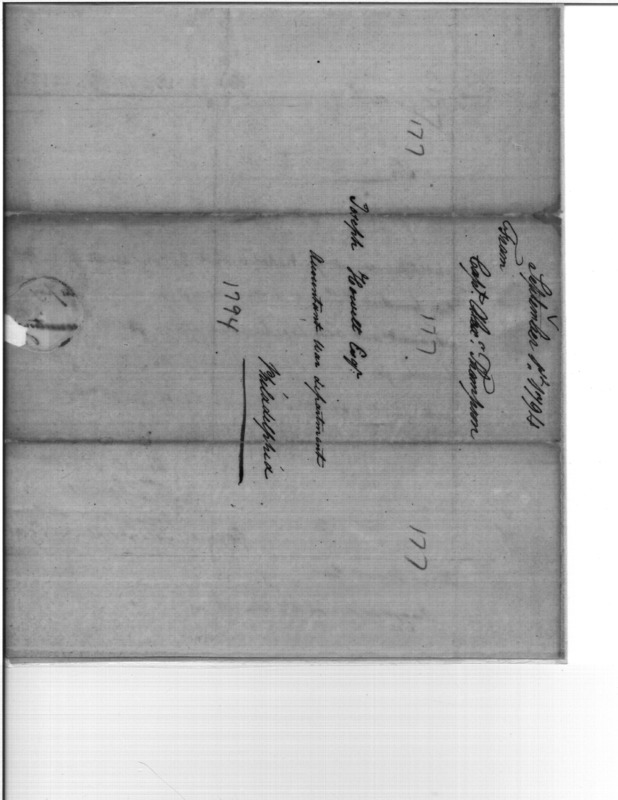 September 1st 1794
From
Capt. Alexr. Thompson
177
177
177
Joseph Howell Esqr.
Accountant War department
Philadelphia
1794